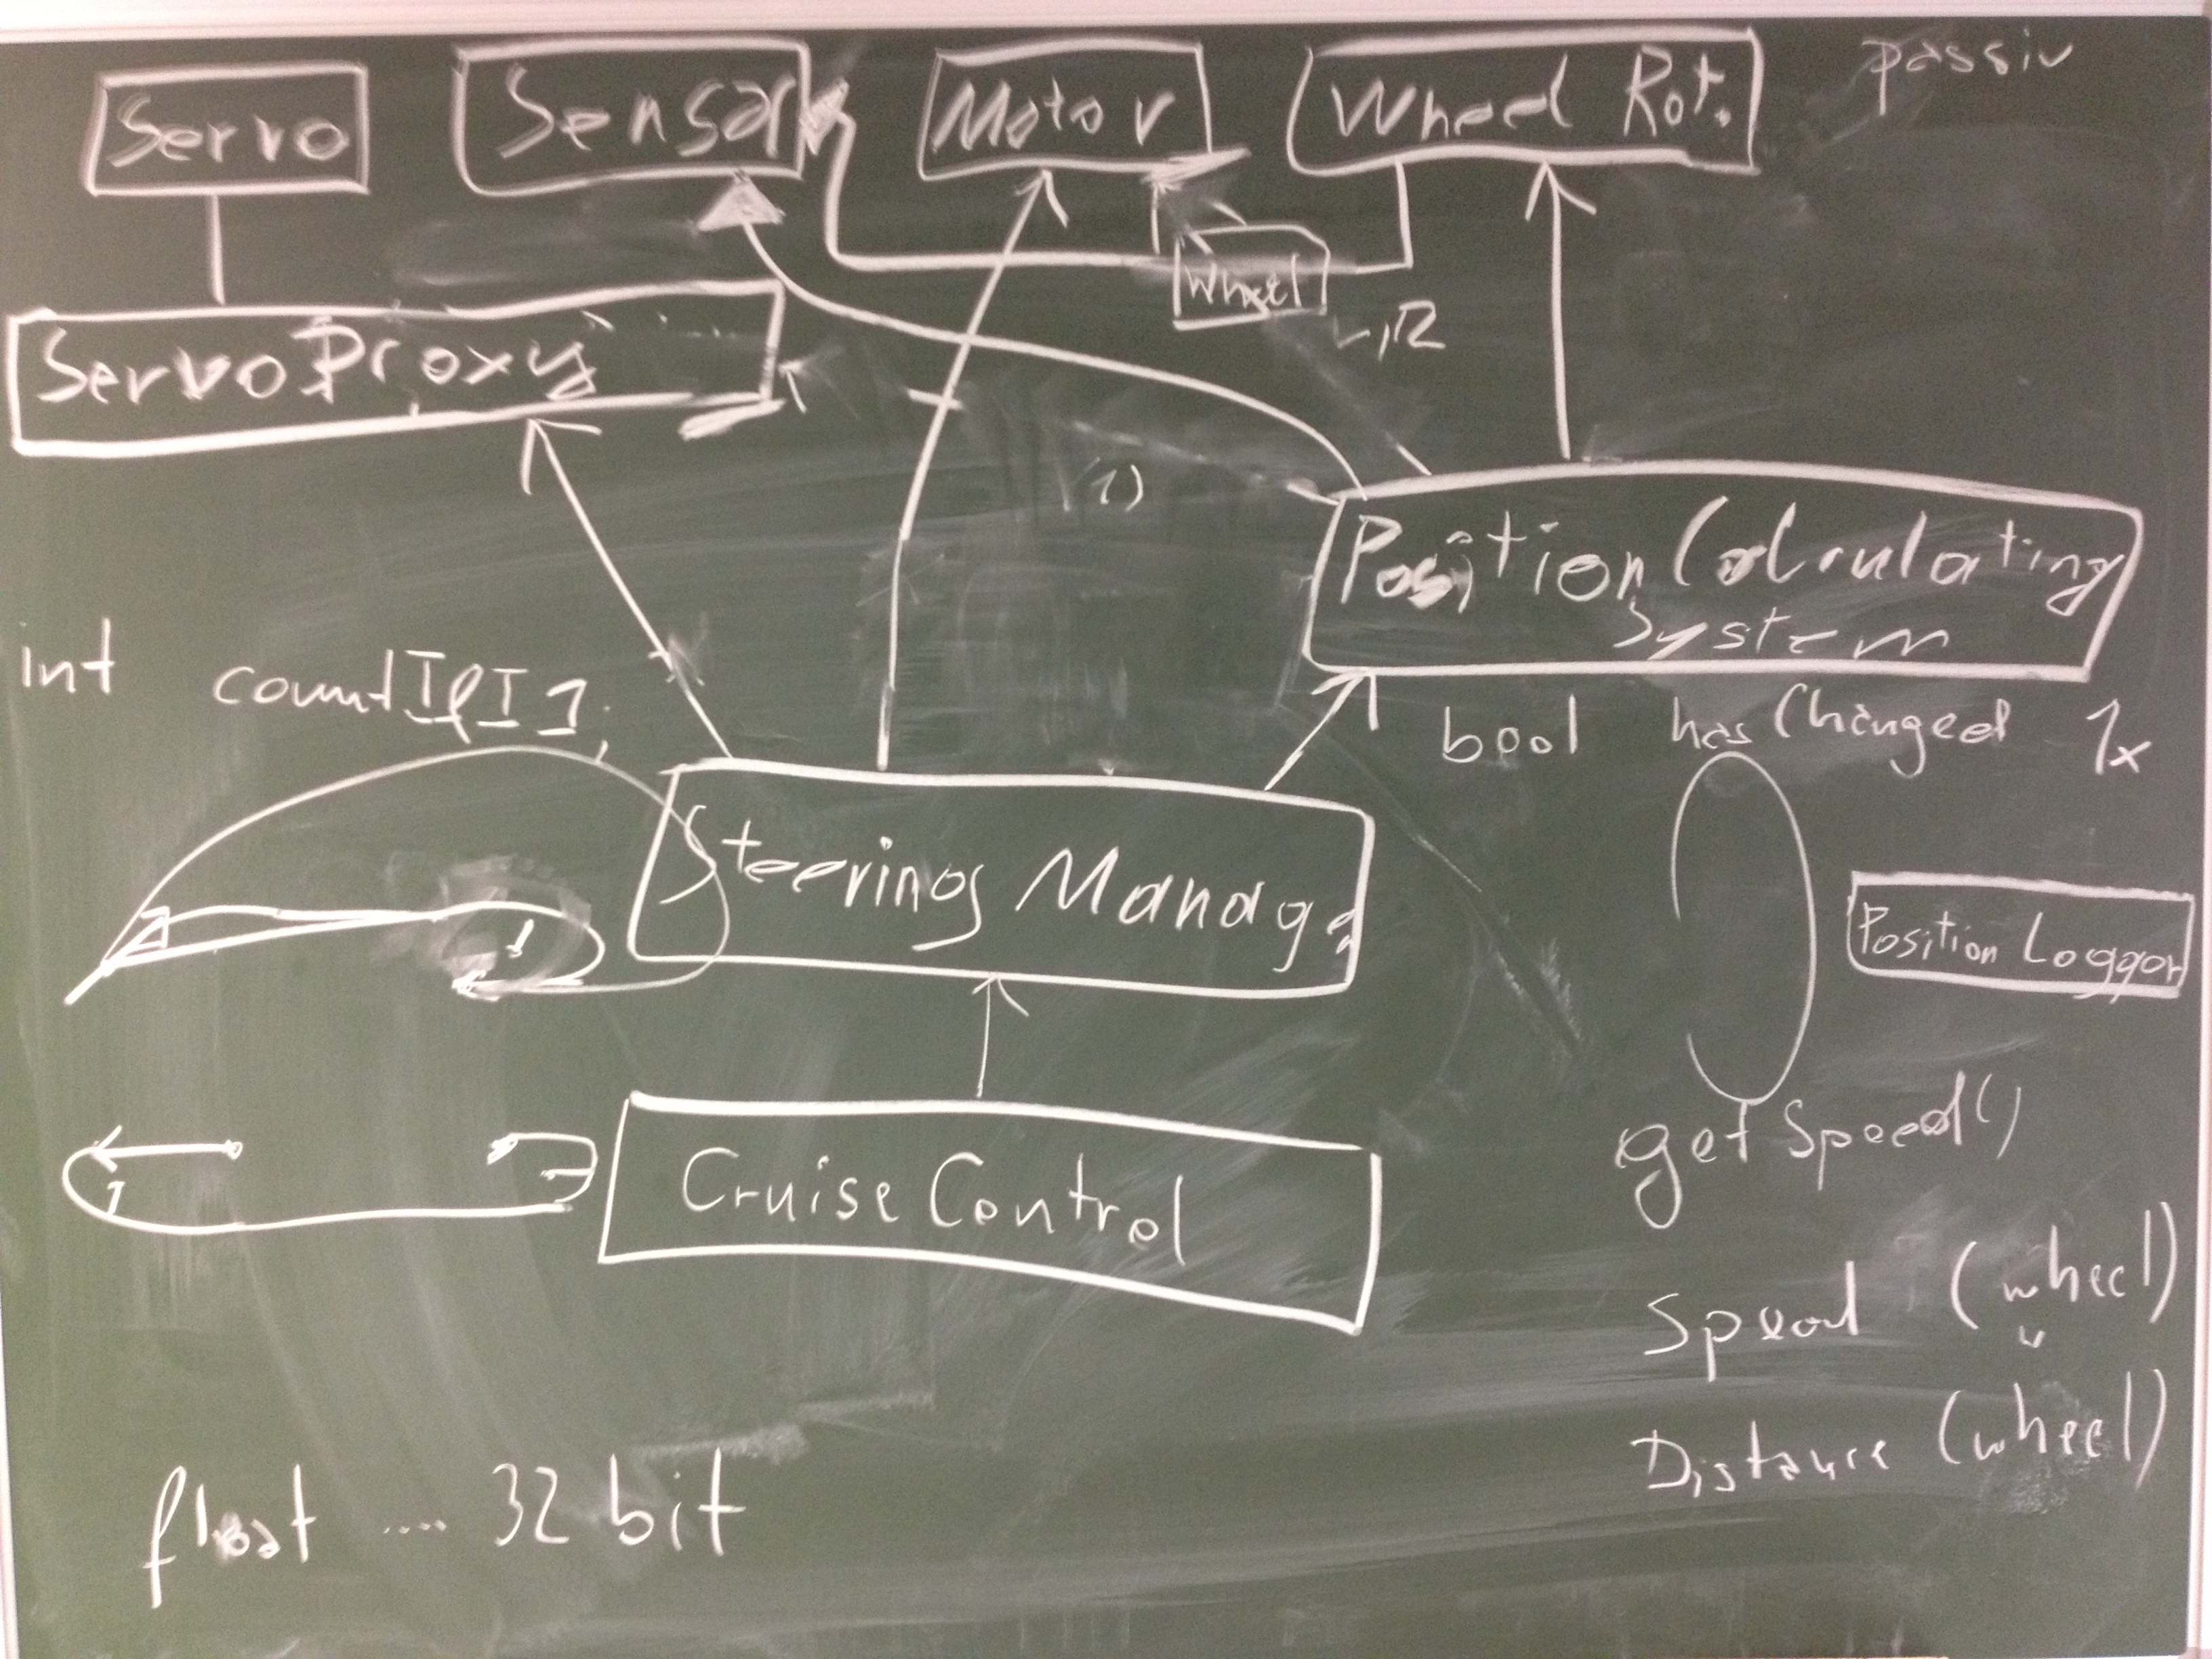 Servo
Sensor
Motor
Wheel Rot.
passiv
Wheel
L,R
ServoProxy
(1)
PositionCalculating
System
int
bool hasChanged 1x
Steerings Manag
Position Logger
CruiseControl
getSpeed()
Speed (wheel)
Distance (wheel)
float .... 32 bit